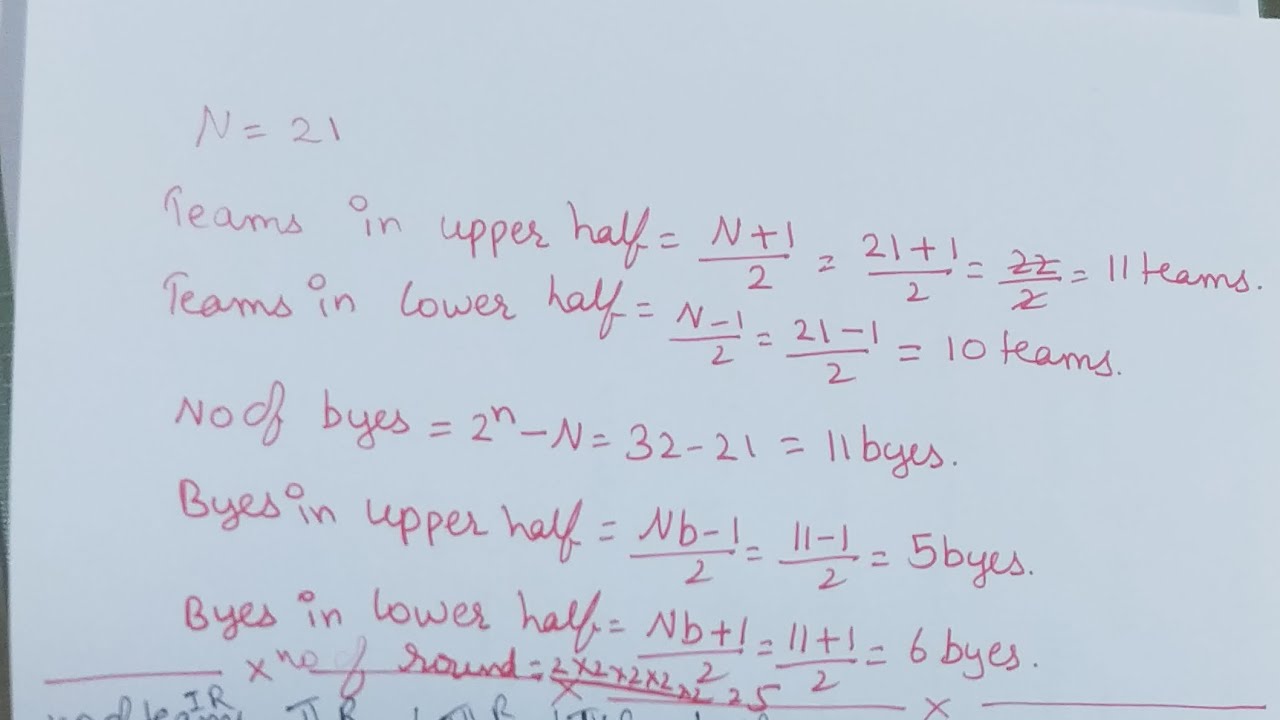 N = 21
Teams in upper half = N+1/2 = 21+1/2 = 22/2 = 11 teams.
Teams in lower half = N-1/2 = 21-1/2 = 10 teams.
No of byes = 2ⁿ - N = 32 - 21 = 11 byes.
Byes in upper half = Nb-1/2 = 11-1/2 = 5 byes.
Byes in lower half = Nb+1/2 = 11+1/2 = 6 byes.
× no of round = 2×2×2×2×2 = 5 × ×
IR II R III R